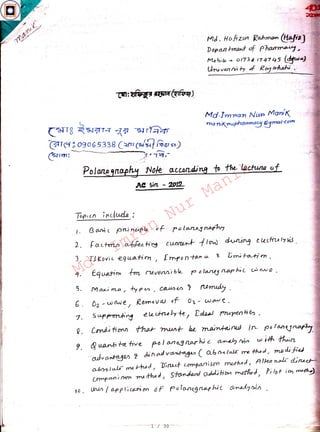 Md. Hafizur Rahman (Hafiz)
Department of Pharmacy,
Mobile → 01734 174745
University of Rajshahi.
মোঃ হাফিজুর রহমান (হাফিজ)
Md.Imran Nur Manik
manikrupharmacy@gmail.com
মোঃ ইমরান নুর মানিক
রোল: 09065338
Polarography Note according to the Lecture of
AC Sir - 2012
Topics include:
1. Basic principle of polarography
2. Factors affecting current flow during electrolysis.
3. Ilkovic equation, Importance & Limitation.
4. Equation for reversible polarographic wave.
5. Maxima, types, causes & remedy.
6. O2-wave, Removal of O2-wave.
7. Supporting electrolyte, Ideal properties.
8. Conditions that must be maintained in polarography
9. Quantitative polarographic analysis with their
advantages & disadvantages (absolute method, modified
absolute method, Direct comparison method, Alternate direct
comparison method, Standard addition method, Pilot ion method)
10. Uses / application of Polarographic analysis.
Md. Imran Nur Manik
1 / 30